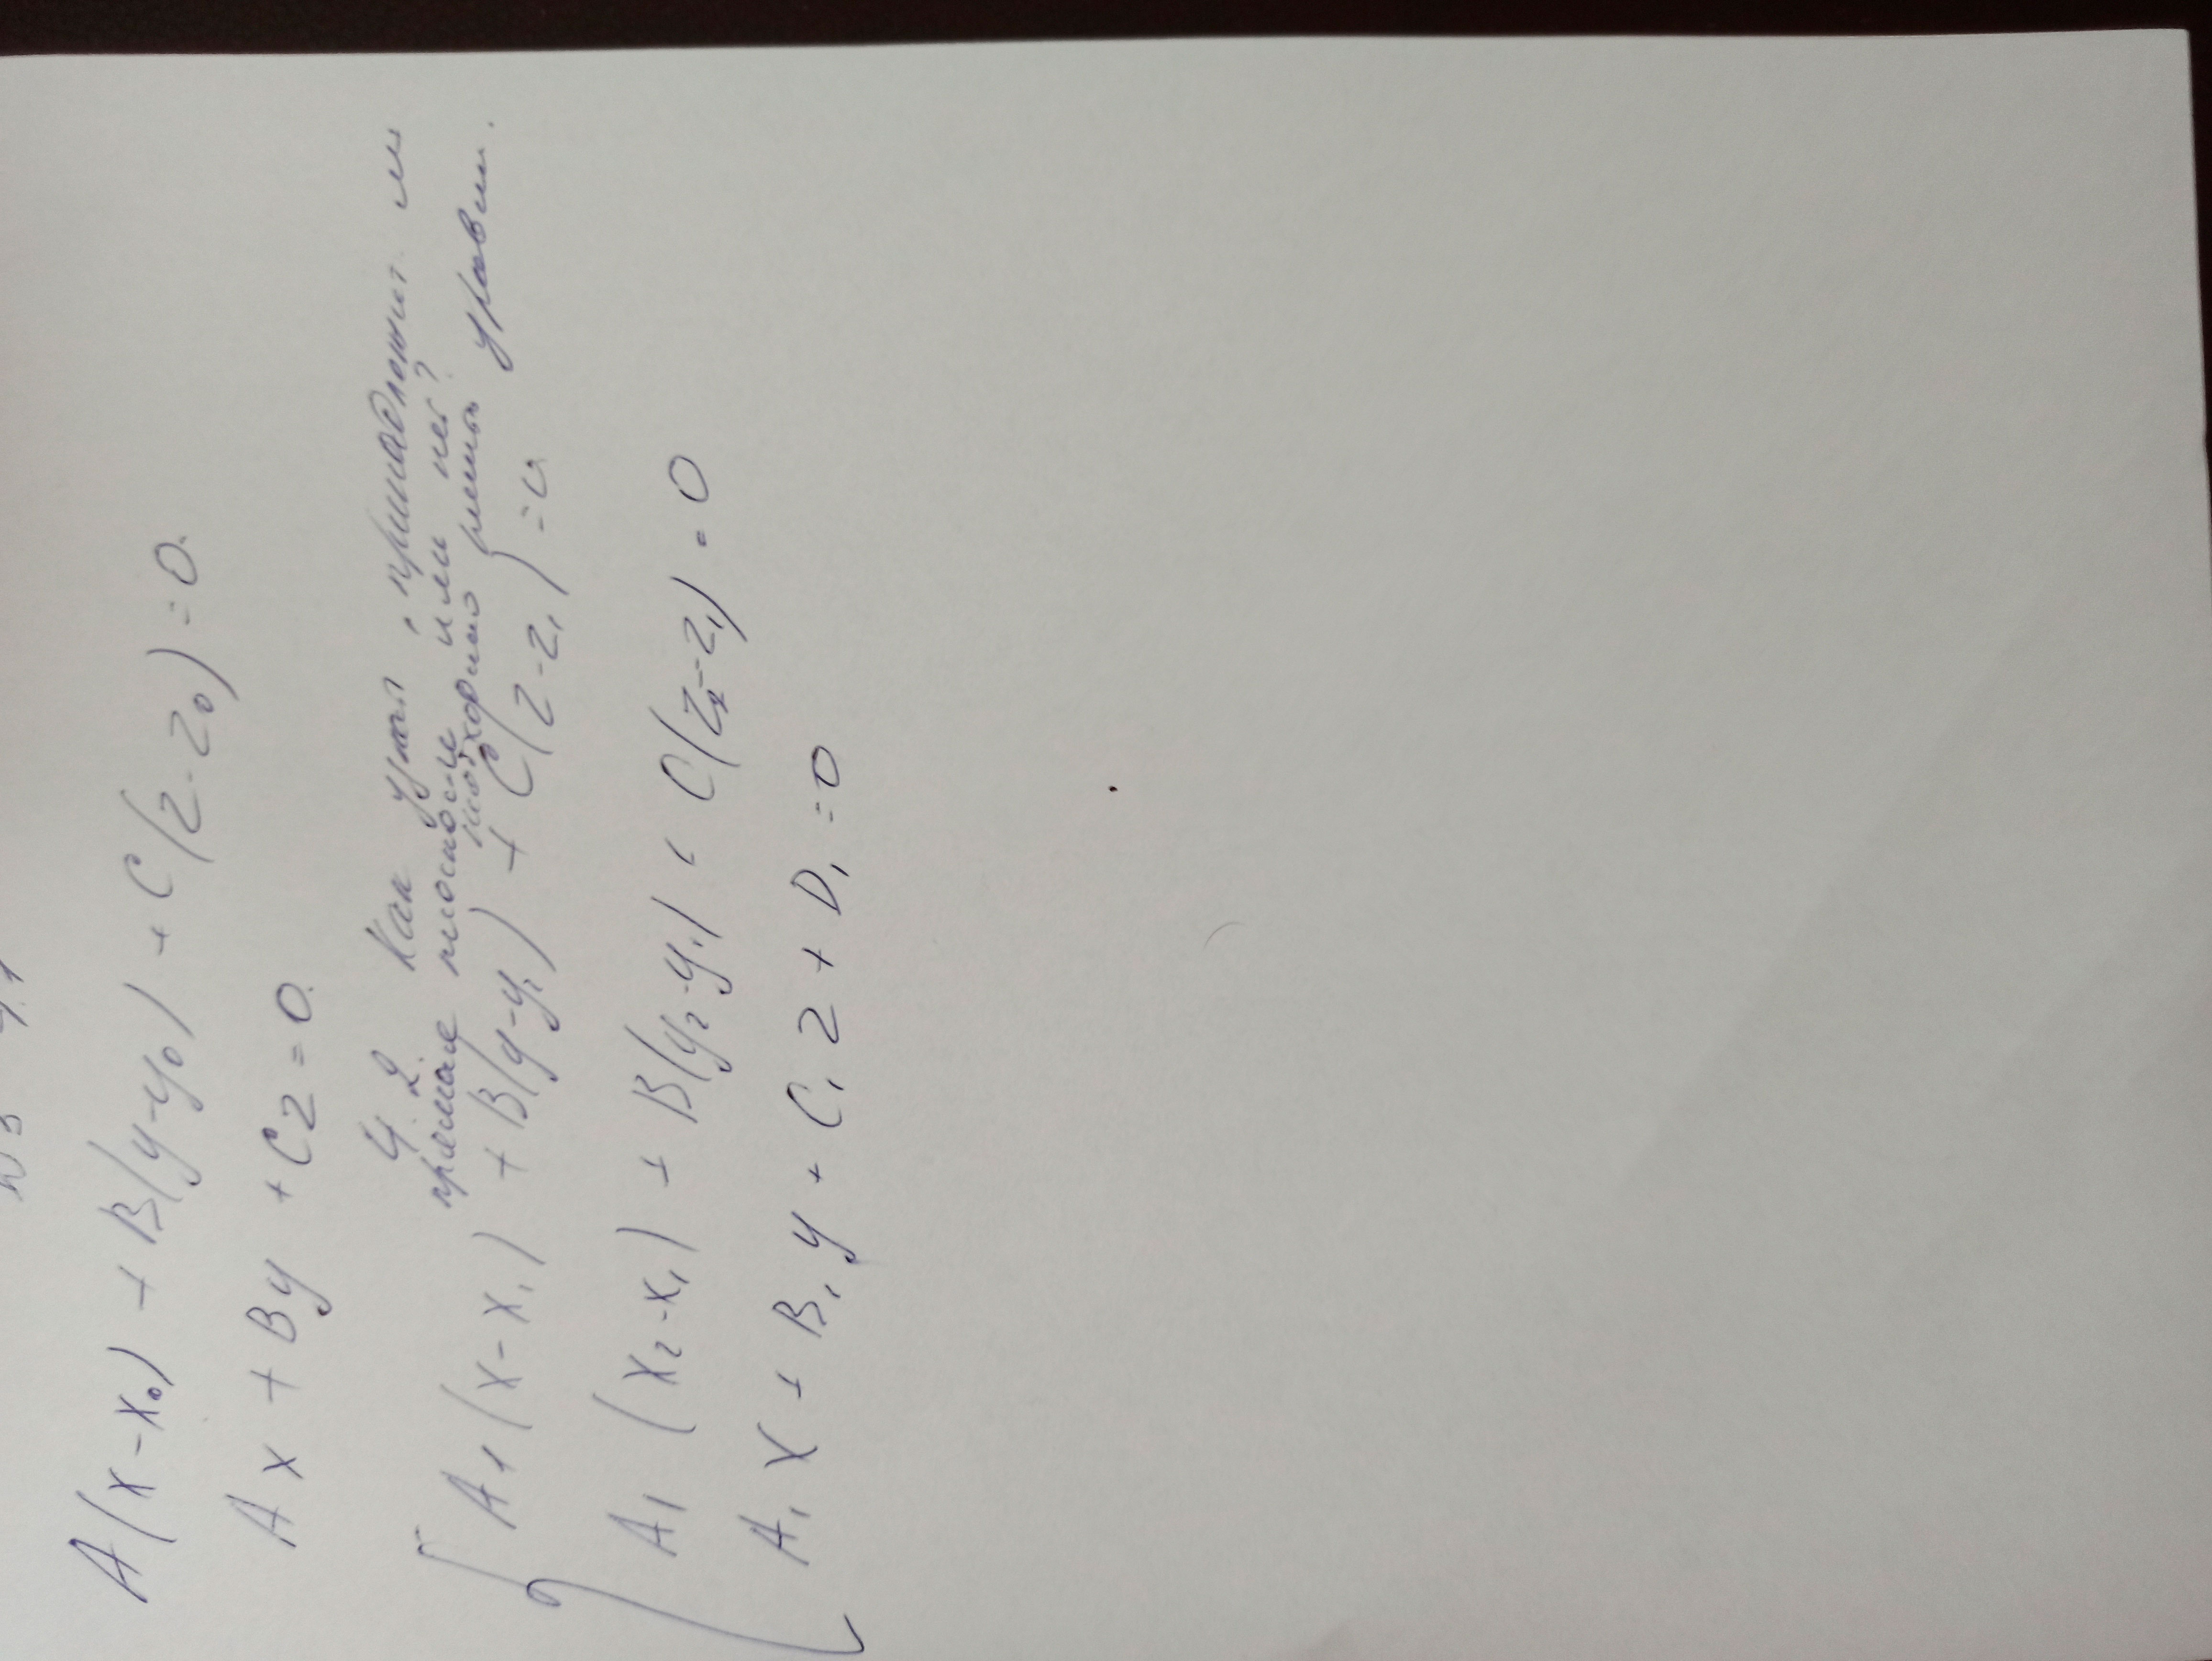 A(x-x₀) + B(y-y₀) + C(z-z₀) = 0.
Ax + By + Cz = 0.
4.2. Как узнат, принадлежит ли
прямая плоскости или нет?
необходимо решить уравнен.
A₁(x-x₁) + B(y-y₂) + C(z-z₁) = 0
A₁(x₂-x₁) + B(y₂-y₁) + C(z₂-z₁) = 0
A₁x + B₁y + C₁z + D₁ = 0